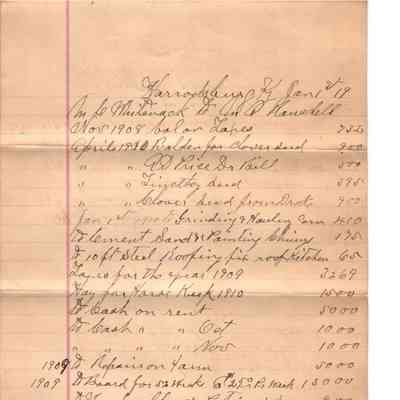 Harrodsburg Ky Jan 1st 19
To M P
Nov 1908 bal on Taxes 732
April 1910 for clover seed 900
" " Price Dr Bill 500
" " Timothy seed 595
" " Clover seed from 900
Jan 1st Grinding & Hauling Corn 450
To Cement Sand & Painting Chimy 195
To 10 ft Steel Roofing for roof Kitchen 65
Taxes for the year 1909 3269
Hay for 1910 1500
To Cash on rent 5000
To Cash " " Oct 1000
" " " " Nov 1000
1909 To Repairs on Farm 5000
1909 To Board for 52 weeks @ Pr Week 13000